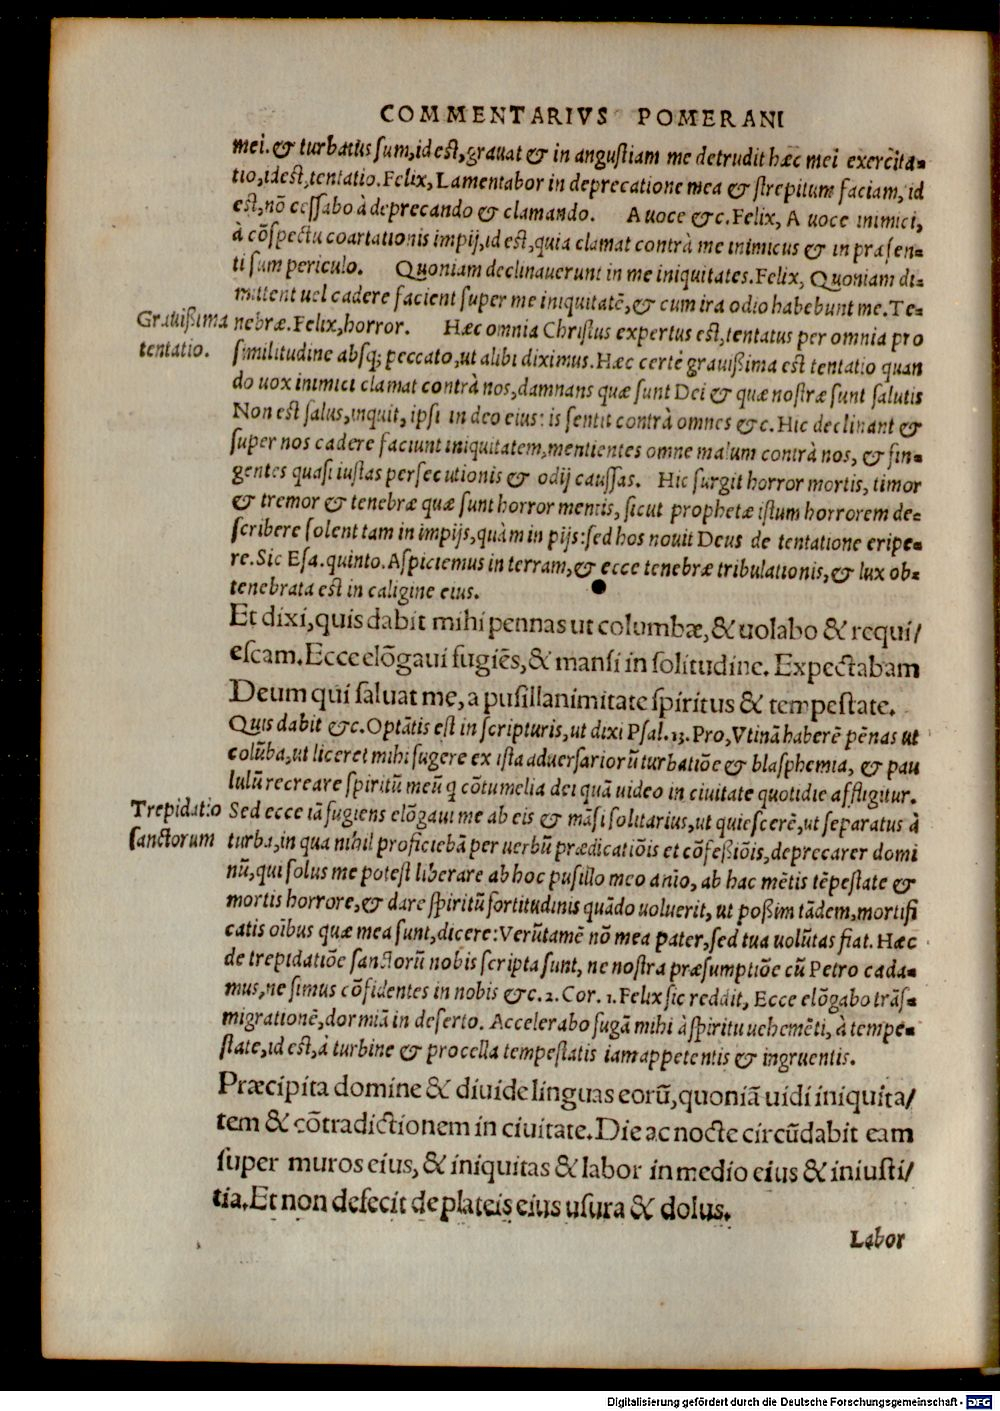 COMMENTARIVS POMERANI
mei. & turbatus sum, id est, grauat & in angustiam me detrudit hæc mei exercita-
tio, idest, tentatio. Felix, Lamentabor in deprecatione mea & strepitum faciam, id
est, nõ cessabo à deprecando & clamando. A uoce &c. Felix, A uoce inimici,
à cõspectu coartationis impij, id est, quia clamat contrà me inimicus & in præsen-
ti sum periculo. Quoniam declinauerunt in me iniquitates. Felix, Quoniam di-
mittent uel cadere facient super me iniquitatẽ, & cum ira odio habebunt me. Te-
Grauißima
tentatio.
nebræ. Felix, horror. Hæc omnia Christus expertus est, tentatus per omnia pro
similitudine absq; peccato, ut alibi diximus. Hæc certè grauißima est tentatio quan
do uox inimici clamat contrà nos, damnans quæ sunt Dei & quæ nostræ sunt salutis
Non est salus, inquit, ipsi in deo eius: is sentit contrà omnes &c. Hic declinant &
super nos cadere faciunt iniquitatem, mentientes omne malum contrà nos, & fin-
gentes quasi iustas persecutionis & odij caussas. Hic surgit horror mortis, timor
& tremor & tenebræ quæ sunt horror mentis, sicut prophetæ istum horrorem de-
scribere solent tam in impijs, quàm in pijs: sed hos nouit Deus de tentatione eripe-
re. Sic Esa. quinto. Aspiciemus in terram, & ecce tenebræ tribulationis, & lux ob-
tenebrata est in caligine eius.
Et dixi, quis dabit mihi pennas ut columbæ, & uolabo & requi/
escam. Ecce elõgaui fugiẽs, & mansi in solitudine. Expectabam
Deum qui saluat me, a pusillanimitate spiritus & tempestate.
Quis dabit &c. Optãtis est in scripturis, ut dixi Psal. 13. Pro, Vtinã haberẽ pẽnas ut
colũba, ut liceret mihi fugere ex ista aduersariorũ turbatiõe & blasphemia, & pau
lulũ recreare spiritũ meũ q̃ cõtumelia dei quã uideo in ciuitate quotidie affligitur.
Trepidatio
sanctorum
Sed ecce iã fugiens elõgaui me ab eis & mãsi solitarius, ut quiescerẽ, ut separatus à
turba, in qua nihil proficiebã per uerbũ prædicatiõis et cõfeßiõis, deprecarer domi
nũ, qui solus me potest liberare ab hoc pusillo meo anĩo, ab hac mẽtis tẽpestate &
mortis horrore, & dare spiritũ fortitudinis quãdo uoluerit, ut poßim tãdem, mortifi
catis oĩbus quæ mea sunt, dicere: Verũtamẽ nõ mea pater, sed tua uolũtas fiat. Hæc
de trepidatiõe sanctorũ nobis scripta sunt, ne nostra præsumptiõe cũ Petro cada-
mus, ne simus cõfidentes in nobis &c. 2. Cor. 1. Felix sic reddit, Ecce elõgabo trãs-
migrationẽ, dormiã in deserto. Accelerabo fugã mihi à spiritu uehemẽti, à tempe-
state, id est, à turbine & procella tempestatis iam appetentis & ingruentis.
Præcipita domine & diuide linguas eorũ, quoniã uidi iniquita/
tem & cõtradictionem in ciuitate. Die ac nocte circũdabit eam
super muros eius, & iniquitas & labor in medio eius & iniusti/
tia. Et non defecit de plateis eius usura & dolus.
Labor
Digitalisierung gefördert durch die Deutsche Forschungsgemeinschaft - DFG